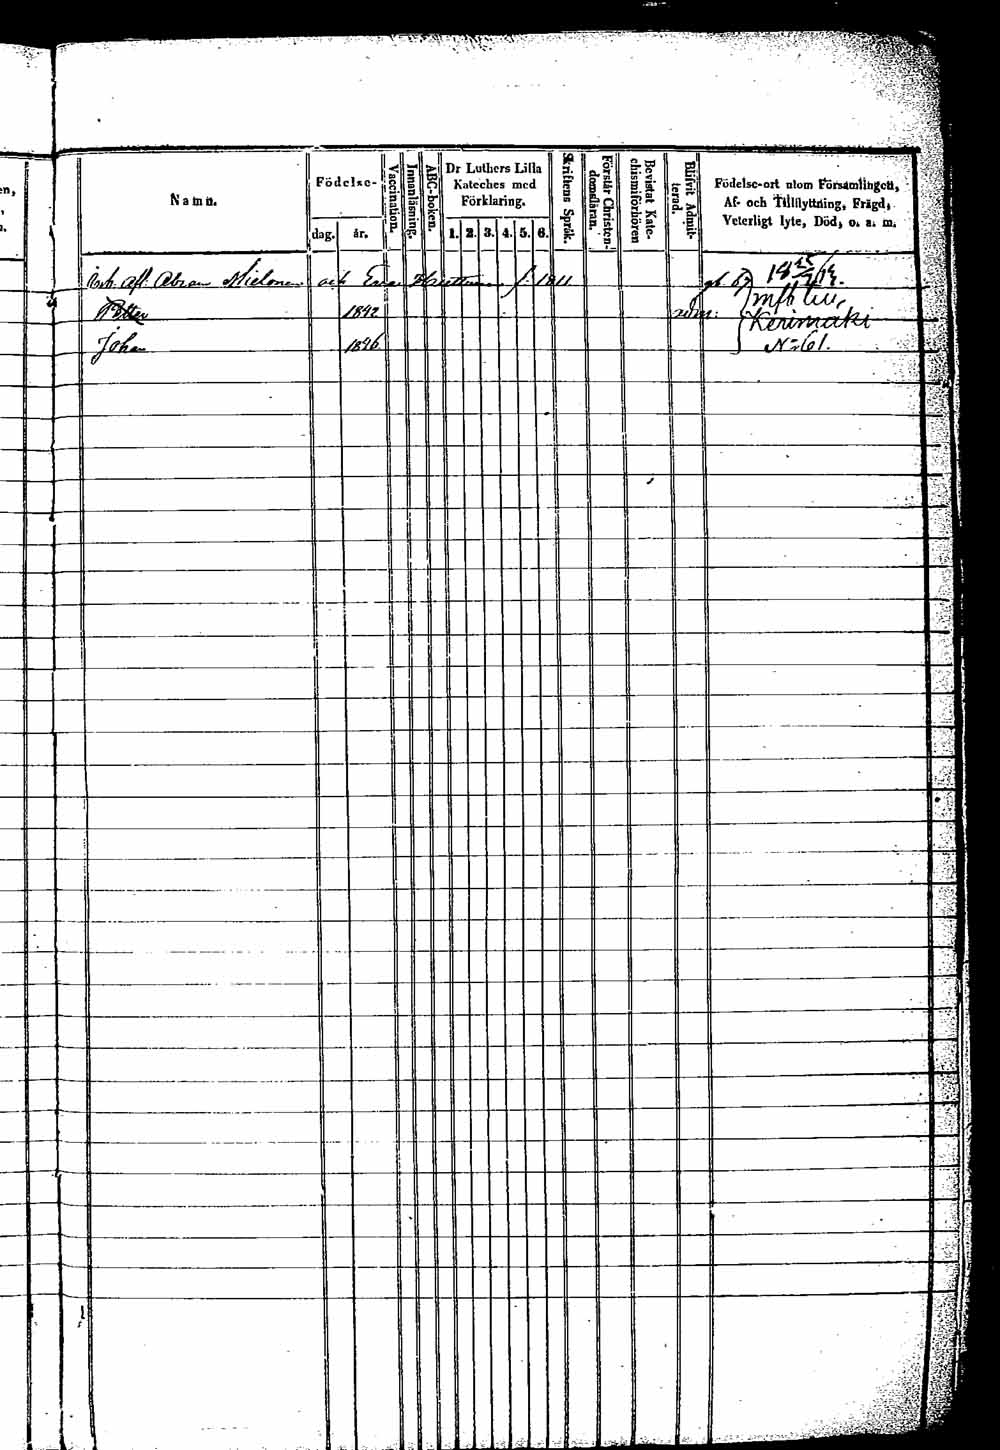 en,
Namn.
Födelse-
dag. år.
Vaccination.
Innanläsning.
ABC-boken.
Dr Luthers Lilla
Kateches med
Förklaring.
1. 2. 3. 4. 5. 6.
Skriftens Språk.
Förstår Christen-
domsläran.
Bevistat Kate-
chismiförhören
Blifvit Admit-
terad.
Födelse-ort utom Församlingen,
Af- och Tillflyttning, Frägd,
Veterligt lyte, Död, o. a. m.
Abram Mielonen och Eva f. 1811
Petter 1842
Johan 1846
Kerimäki
N:o 61.